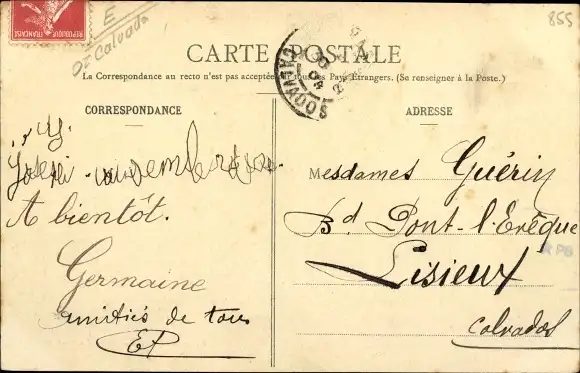 855
E
Dt Calvados
REPUBLIQUE FRANCAISE
CARTE POSTALE
La Correspondance au recto n'est pas acceptée par tous les Pays Étrangers. (Se renseigner à la Poste.)
CALVADOS
CORRESPONDANCE
A bientôt.
Germaine
amitiés de tous
EP
ADRESSE
Mesdames Guérin
Bd Pont-l'Evêque
Lisieux
Calvados